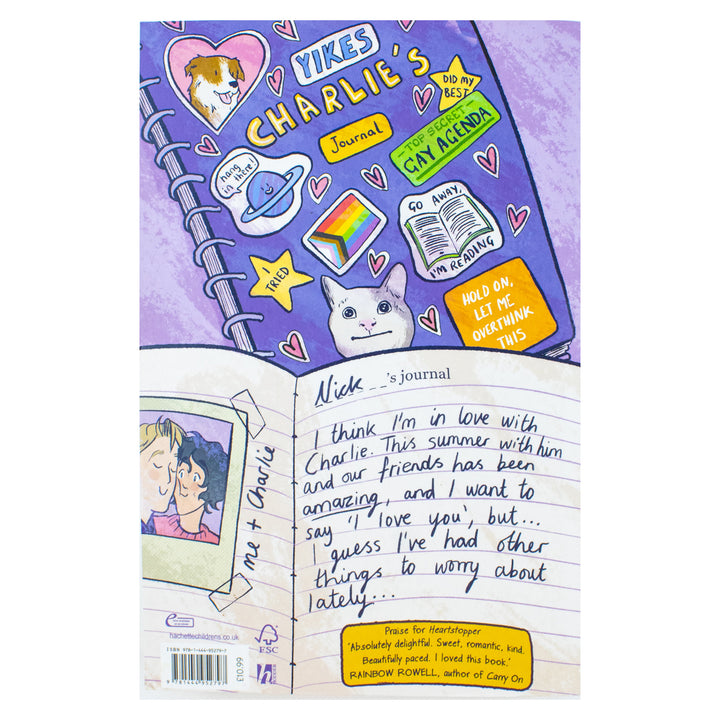 YIKES
CHARLIE'S
Journal
DID MY
BEST
- TOP SECRET -
GAY AGENDA
hang
in there!
GO AWAY,
I'M READING
I
TRIED
HOLD ON,
LET ME
OVERTHINK
THIS
Nick's journal
me + Charlie
I think I'm in love with
Charlie. This summer with him
and our friends has been
amazing, and I want to
say 'I love you', but...
I guess I've had other
things to worry about
lately...
hachettechildrens.co.uk
FSC
ISBN 978-1-444-95279-7
9 781444 952797
£10.99
h
Praise for Heartstopper
'Absolutely delightful. Sweet, romantic, kind.
Beautifully paced. I loved this book.'
RAINBOW ROWELL, author of Carry On